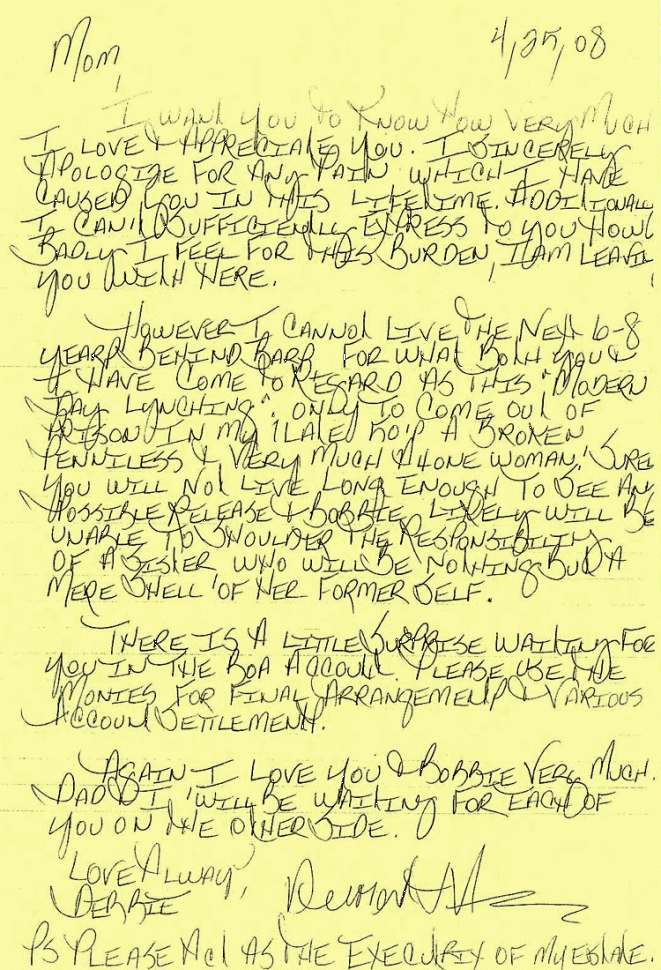 Mom,
4/25/08
I WANT YOU TO KNOW HOW VERY MUCH
I LOVE & APPRECIATE YOU. I SINCERELY
APOLOGIZE FOR ANY PAIN WHICH I HAVE
CAUSED YOU IN THIS LIFETIME. ADDITIONALL
I CAN'T SUFFICIENTLY EXPRESS TO YOU HOW
BADLY I FEEL FOR THIS BURDEN, I AM LEAVIN
YOU WITH HERE.
HOWEVER I CANNOT LIVE THE NEXT 6-8
YEARS BEHIND BARS FOR WHAT BOTH YOU &
I HAVE COME TO REGARD AS THIS "MODERN
DAY LYNCHING", ONLY TO COME OUT OF
PRISON IN MY LATE 50'S A BROKEN
PENNILESS & VERY MUCH ALONE WOMAN. SUREL
YOU WILL NOT LIVE LONG ENOUGH TO SEE ANY
POSSIBLE RELEASE & BOBBIE LIKELY WILL BE
UNABLE TO SHOULDER THE RESPONSIBILITY
OF A SISTER WHO WILL BE NOTHING BUT A
MERE SHELL OF HER FORMER SELF.
THERE IS A LITTLE SURPRISE WAITING FOR
YOU IN THE BOA ACCOUNT. PLEASE USE THE
MONIES FOR FINAL ARRANGEMENTS & VARIOUS
ACCOUNT SETTLEMENTS.
AGAIN I LOVE YOU & BOBBIE VERY MUCH.
DAD & I WILL BE WAITING FOR EACH OF
YOU ON THE OTHER SIDE.
LOVE ALWAYS,
DEBBIE
PS PLEASE ACT AS THE EXECUTRIX OF MY ESTATE.